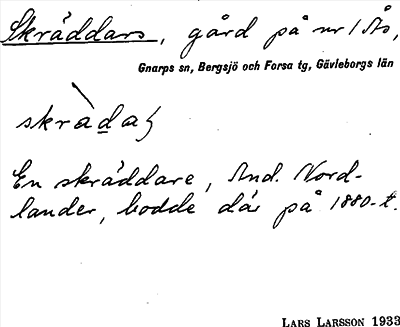 Skräddars, gård på nr 1 Ås,
Gnarps sn, Bergsjö och Forsa tg, Gävleborgs län
skràdaʃ
En skräddare, And. Nord-
lander, bodde där på 1880-t.
LARS LARSSON 1933